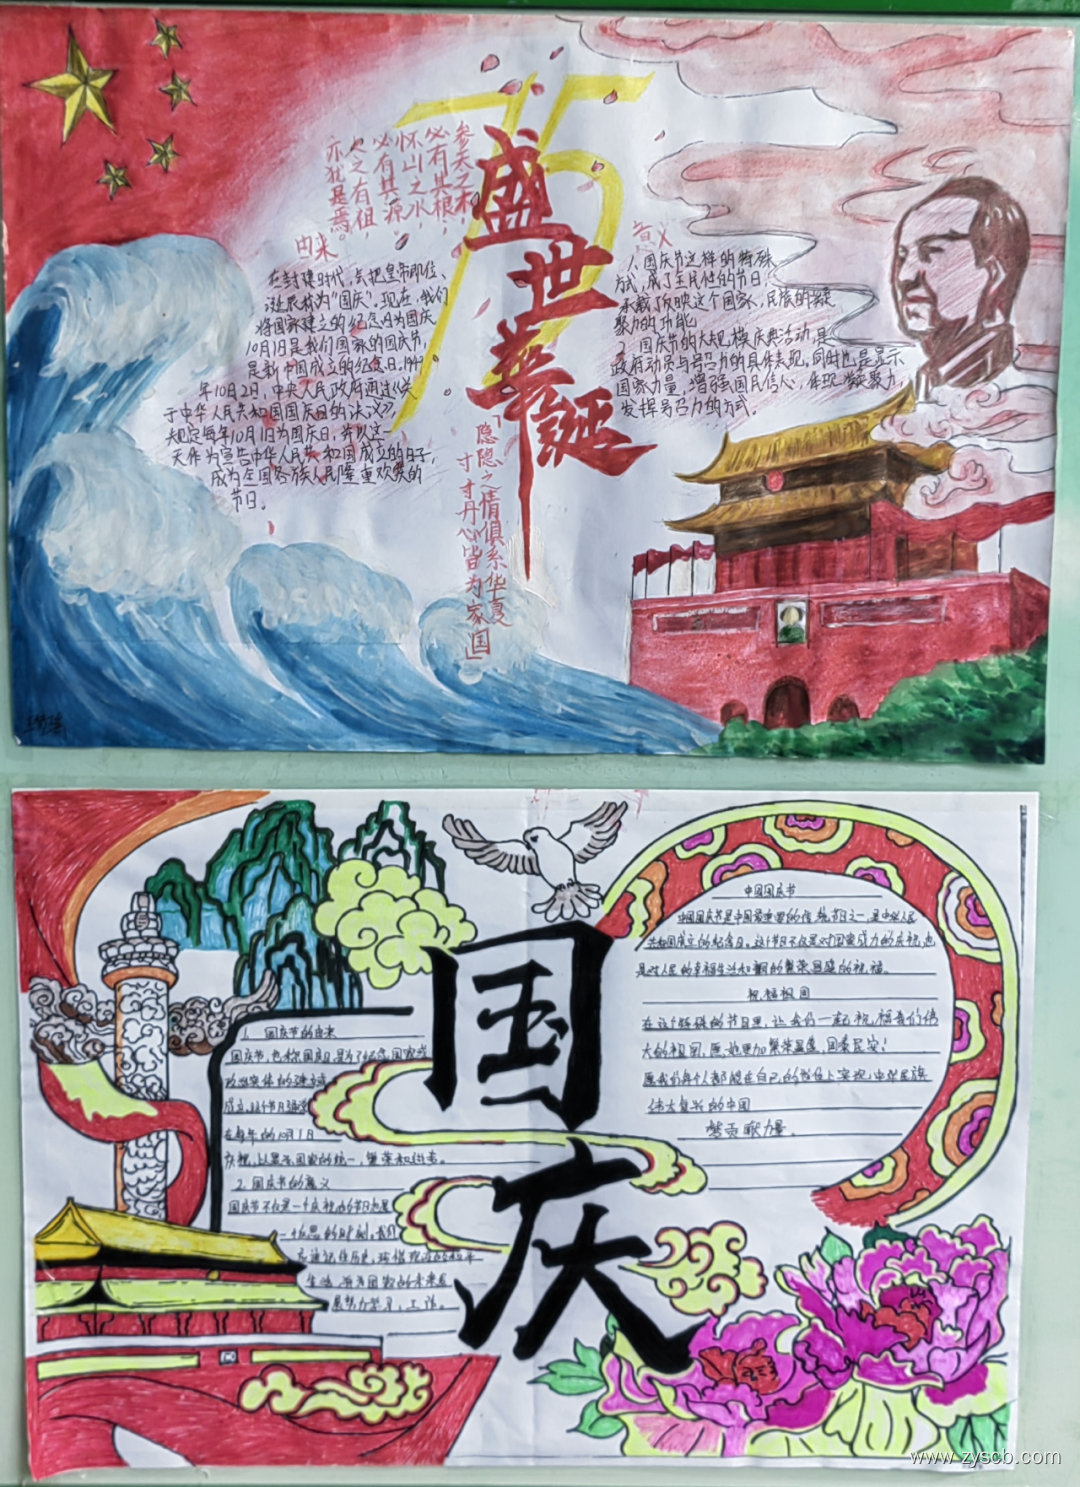 75
盛世華誕
参天之木，
必有其根，
怀山之水，
必有其源。
人之有祖，
亦犹是焉。
由来
在封建时代，会把皇帝即位、
诞辰称为“国庆”。现在，我们
将国家建立的纪念日为国庆
10月1日是我们国家的国庆节，
是新中国成立的纪念日。1949
年10月2日，中央人民政府通过《关
于中华人民共和国国庆日的决议》，
规定每年10月1日为国庆日，并以这一
天作为宣告中华人民共和国成立的日子，
成为全国各族人民隆重欢庆的
节日。
意义
1、国庆节这样的特殊
方式，成了全民性的节日，
承载了反映这个国家、民族的凝
聚力的功能
2、国庆节的大规模庆典活动，是
政府动员与号召力的具体表现。同时也是显示
国家力量、增强国民信心，体现凝聚力，
发挥号召力的方式。
「隐隐之情俱系华夏
寸寸丹心皆为家国」
国庆
1. 国庆节的由来
国庆节，也称国庆日，是为了纪念国家或
政治实体的建立或
成立，这个节日通常
在每年的10月1日
庆祝，以显示国家的统一，繁荣和
2. 国庆节的意义
国庆节不仅是一个庆祝的节日也是
一个反思的时刻。我们
应该记住历史，珍惜现在的和平
生活，并为国家的未来发
展努力学习，工作。
中国国庆节
中国国庆节是中国最重要的传统节日之一，是中华人民
共和国成立的纪念日。这个节日不仅是对国家成立的庆祝，也
是对人民的幸福生活和国的繁荣昌盛的祝福。
祝福祖国
在这个特殊的节日里，让我们一起祝福我们伟
大的祖国，愿她更加繁荣昌盛，国泰民安！
愿我们每个人都能在自己的岗位上实现中华民族
伟大复兴的中国
梦贡献力量。
www.zyscb.com